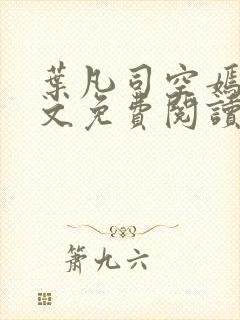 葉凡司空嫣
文免費閱讀
簫九六